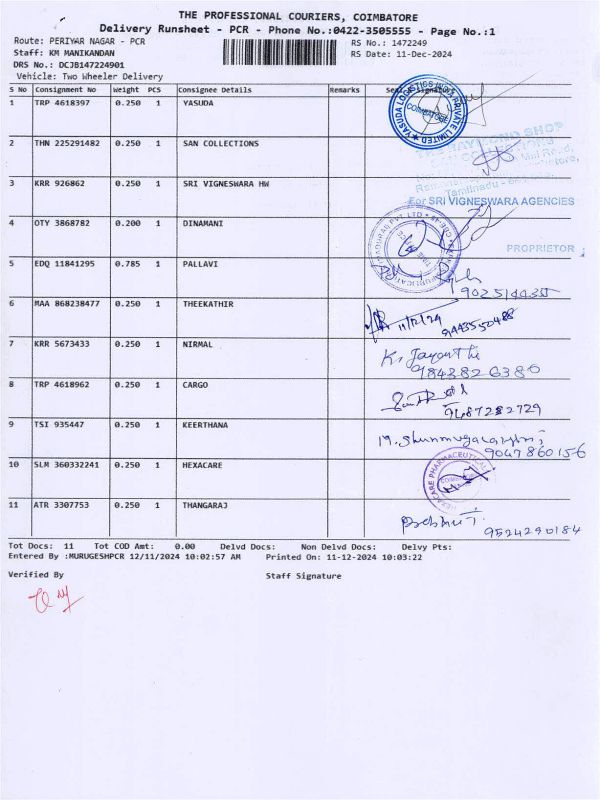 THE PROFESSIONAL COURIERS, COIMBATORE
Delivery Runsheet - PCR - Phone No.:0422-3505555 - Page No.:1
Route: PERIYAR NAGAR - PCR RS No.: 1472249
Staff: KM MANIKANDAN RS Date: 11-Dec-2024
DRS No.: DCJB147224901
Vehicle: Two Wheeler Delivery
S No Consignment No Weight PCS Consignee Details Remarks
1 TRP 4618397 0.250 1 YASUDA
YASUDA LOGISTICS INDIA PRIVATE LIMITED
COIMBATORE
2 THN 225291482 0.250 1 SAN COLLECTIONS
SHOP
Mill Road,
Tamilnadu
3 KRR 926862 0.250 1 SRI VIGNESWARA HW
For SRI VIGNESWARA AGENCIES
4 OTY 3868782 0.200 1 DINAMANI
PROPRIETOR
5 EDQ 11841295 0.785 1 PALLAVI
6 MAA 868238477 0.250 1 THEEKATHIR
11/12/24 9443550488
7 KRR 5673433 0.250 1 NIRMAL
K. Jayanthi
9843826380
8 TRP 4618962 0.250 1 CARGO
9487282729
9 TSI 935447 0.250 1 KEERTHANA
9047860156
10 SLM 360332241 0.250 1 HEXACARE
HEXACARE PHARMACEUTICAL
11 ATR 3307753 0.250 1 THANGARAJ
9524290184
Tot Docs: 11 Tot COD Amt: 0.00 Delvd Docs: Non Delvd Docs: Delvy Pts:
Entered By :MURUGESHPCR 12/11/2024 10:02:57 AM Printed On: 11-12-2024 10:03:22
Verified By Staff Signature